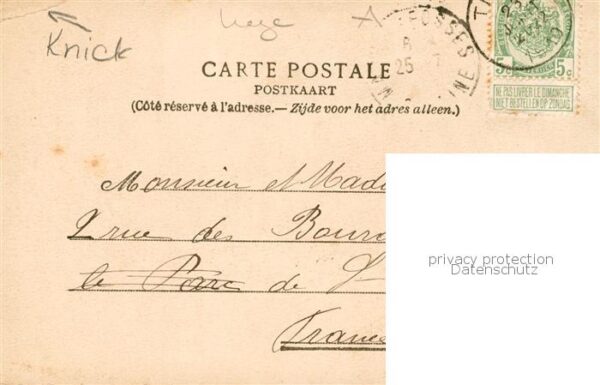 Knick
A
CARTE POSTALE
POSTKAART
(Côté réservé à l'adresse.— Zijde voor het adres alleen.)
FOSSES
25
5c 5c
NE PAS LIVRER LE DIMANCHE
NIET BESTELLEN OP ZONDAG
Monsieur et Mada
2 rue des Bourd
le Parc de S
France
privacy protection
Datenschutz